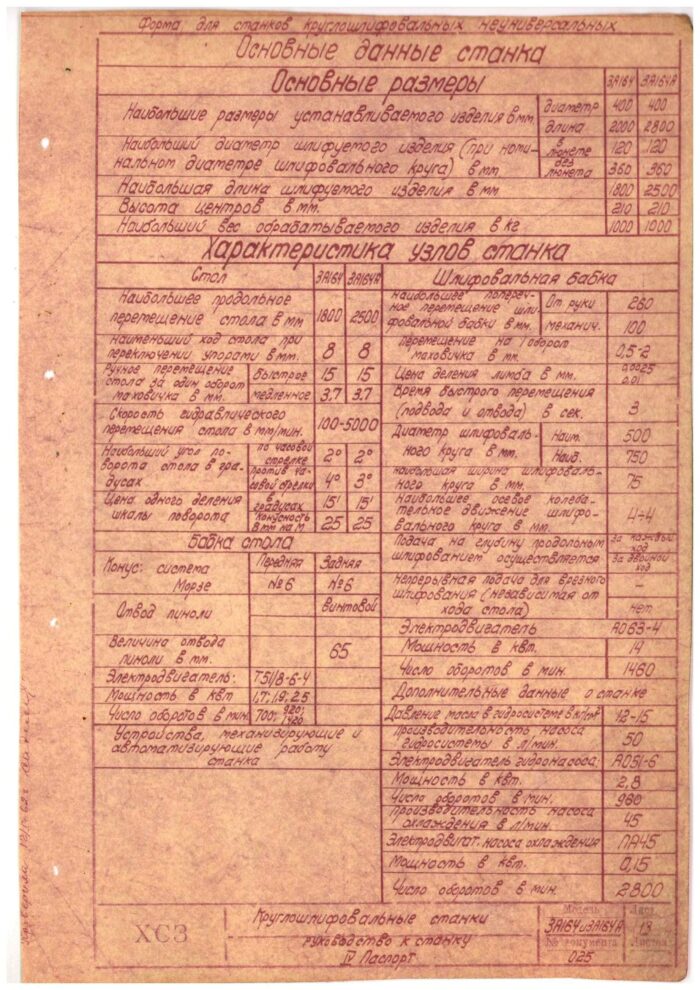 Форма для станков круглошлифовальных неуниверсальных
Основные данные станка
Основные размеры 3А164 3А164А
Наибольшие размеры устанавливаемого изделия в мм. диаметр 400 400
длина 2000 2800
Наибольший диаметр шлифуемого изделия (при номинальном диаметре шлифовального круга) в мм в люнете 120 120
без люнета 360 360
Наибольшая длина шлифуемого изделия в мм 1800 2500
Высота центров в мм. 210 210
Наибольший вес обрабатываемого изделия в кг 1000 1000
Характеристика узлов станка
Стол 3А164 3А164А
Наибольшее продольное
перемещение стола в мм 1800 2500
наименьший ход стола при
переключении упорами в мм. 8 8
Ручное перемещение
стола за один оборот
маховичка в мм. Быстрое 15 15
медленное 3,7 3.7
Скорость гидравлического
перемещения стола в мм/мин. 100-5000
Наибольший угол по-
ворота стола в гра-
дусах по часовой стрелке 2° 2°
против ча-
совой стрелки 4° 3°
Цена одного деления
шкалы поворота в градусах 15' 15'
Конусность
в мм на М 25 25
Бабка стола
Передняя Задняя
Конус: система
Морзе №6 №6
Отвод пиноли винтовой
Величина отвода
пиноли в мм. 65
Электродвигатель: Т51/8-6-4
Мощность в квт 1,7; 1,9; 2.5
Число оборотов в мин. 700; 920; 1420
Устройства, механизирующие и
автоматизирующие работу
станка
Шлифовальная бабка
наибольшее попереч-
ное перемещение шли-
фовальной бабки в мм. От руки 260
механич. 100
перемещение на 1 оборот
маховичка в мм. 0,5-2
Цена деления лимба в мм. 0,0025
0.01
Время быстрого перемещения
(подвода и отвода) в сек. 3
Диаметр шлифоваль-
ного круга в мм. Наим. 500
Наиб. 750
наибольшая ширина шлифоваль-
ного круга в мм. 75
Наибольшее осевое колеба-
тельное движение шлифо-
вального круга в мм. 4÷4
Подача на глубину продольным
шлифованием осуществляется за каждый
ход
За двойной
ход
непрерывная подача для врезного
шлифования (независимая от
хода стола) —
нет
Электродвигатель АО63-4
Мощность в квт. 14
Число оборотов в мин 1460
Дополнительные данные о станке
Давление масла в гидросистеме в кг/см² 12-15
Производительность насоса
гидросистемы в л/мин. 50
Электродвигатель гидронасоса: АО51-6
Мощность в квт. 2,8
Число оборотов в мин. 960
Производительность насоса
охлаждения в л/мин. 45
Электродвигат. насоса охлаждения ПА45
Мощность в квт. 0,15
Число оборотов в мин. 2800
ХСЗ
Круглошлифовальные станки
руководство к станку
IV Паспорт
Модель
3А164 и 3А164А
№ документа
025
Лист
13
Листов